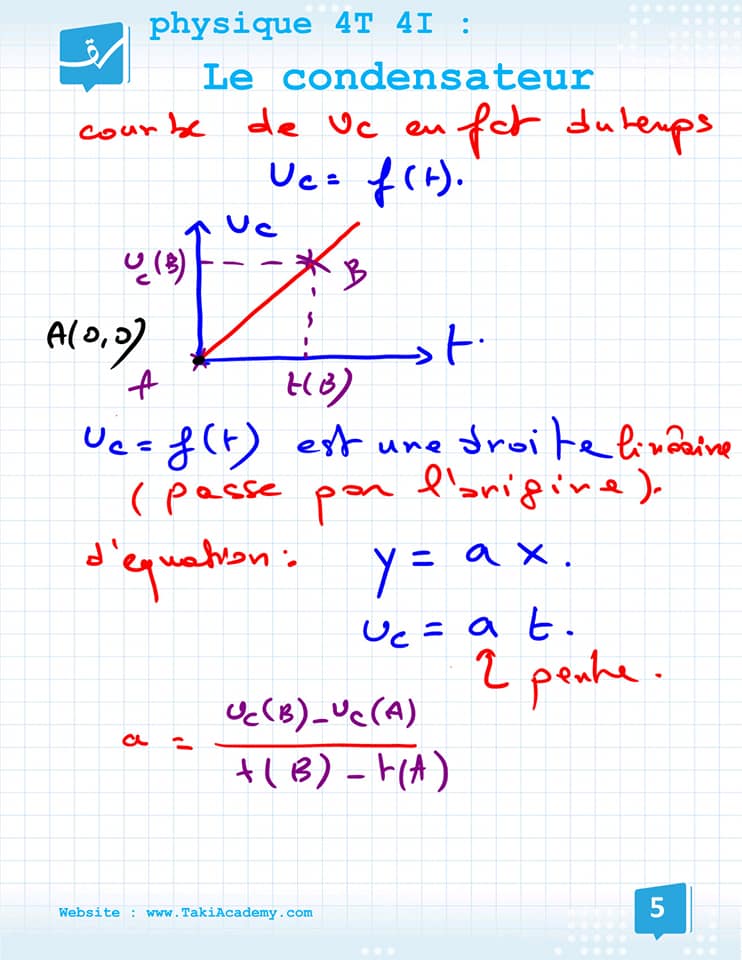 physique 4T 4I :
Le condensateur
courbe de Uc en fct du temps
Uc = f(t).
Uc
Uc(B)
B
A(0,0)
t.
A
t(B)
Uc = f(t) est une droite linéaire
(passe par l'origine).
d'equation : y = a x.
Uc = a t.
pente.
a = Uc(B) - Uc(A)
t(B) - t(A)
Website : www.TakiAcademy.com
5